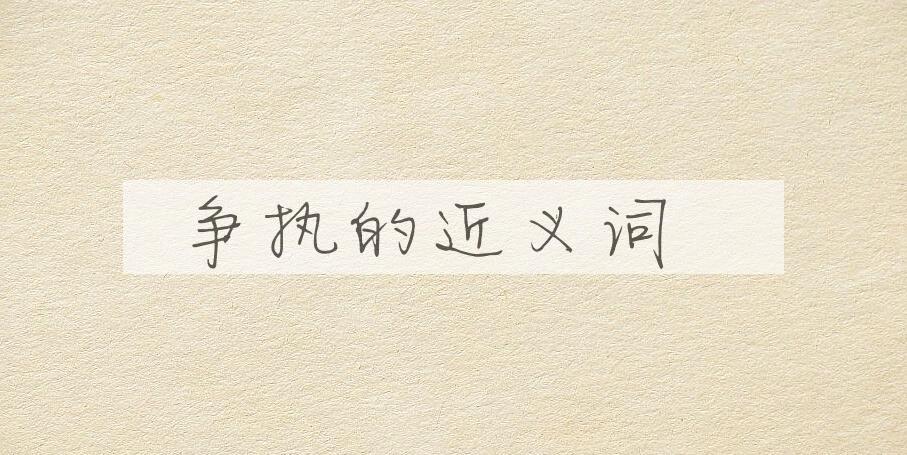 争执的近义词